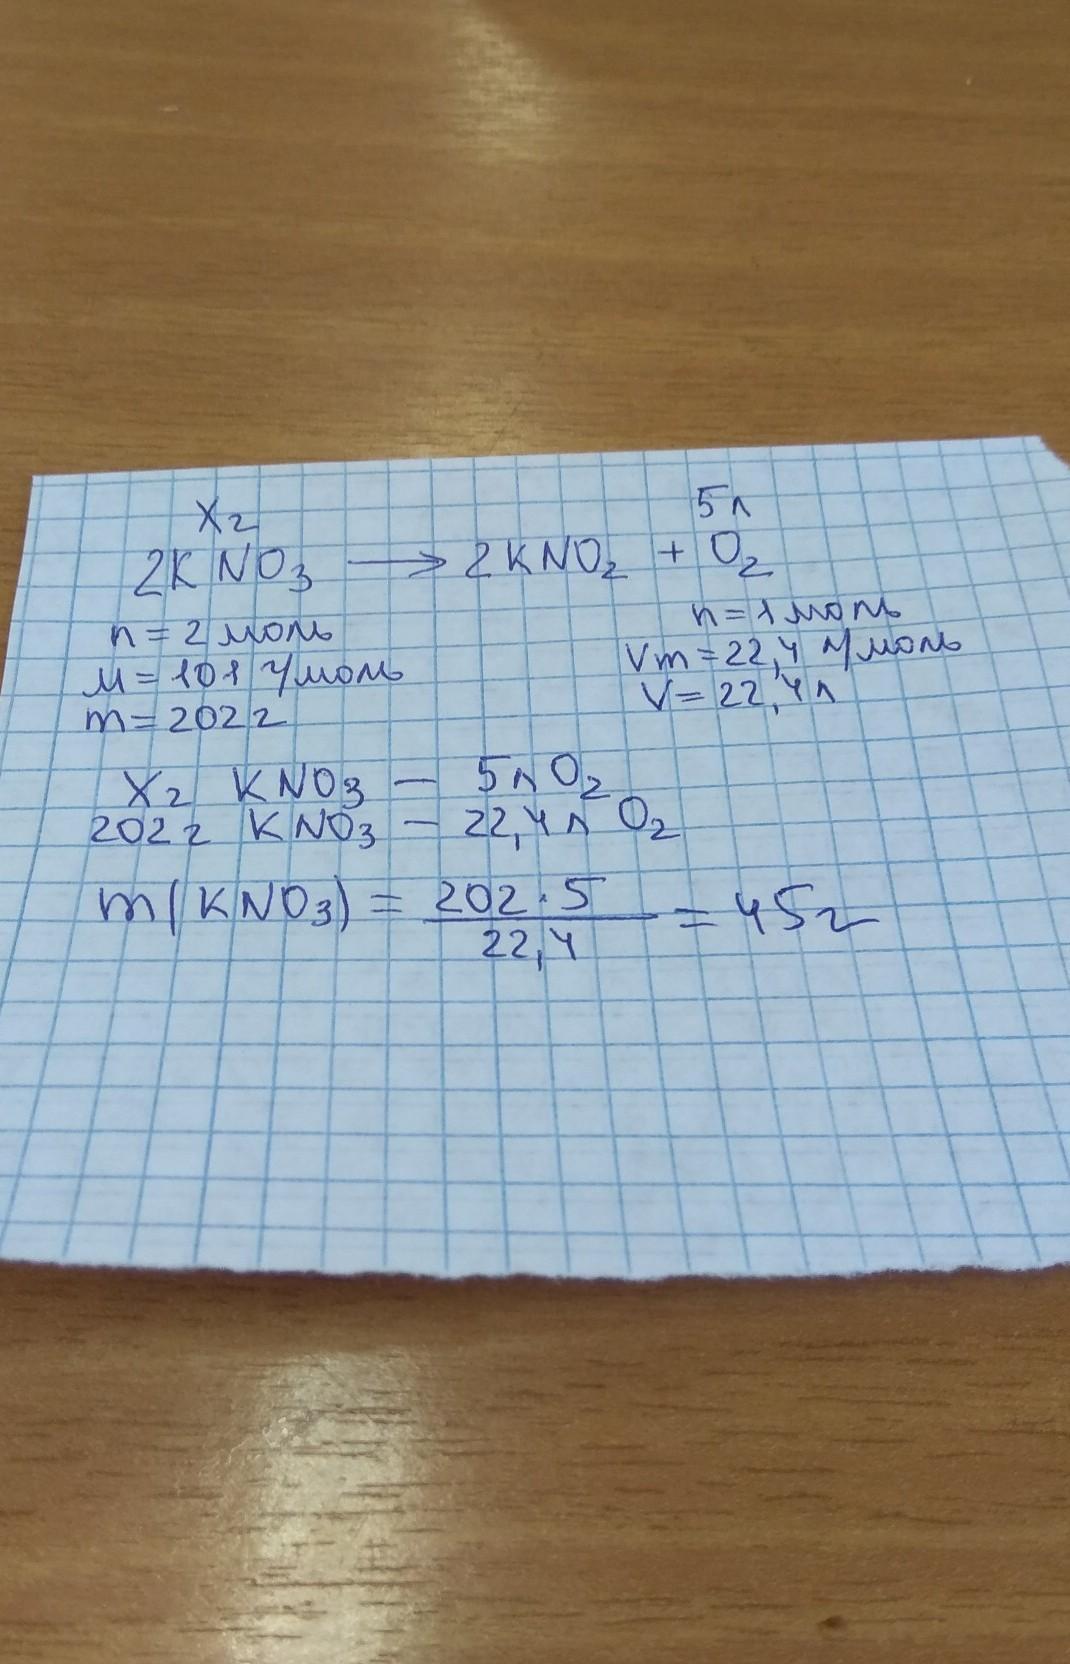 Xг 5л
2KNO₃ → 2KNO₂ + O₂
n=2моль n=1моль
M=101 г/моль Vm=22,4 л/моль
m=202г V=22,4л
Xг KNO₃ — 5л O₂
202г KNO₃ — 22,4л O₂
m(KNO₃) = 202·5 / 22,4 = 45г